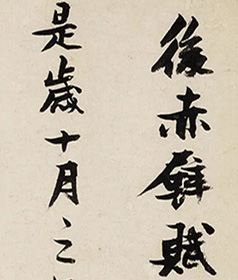 後赤壁賦
是歲十月之